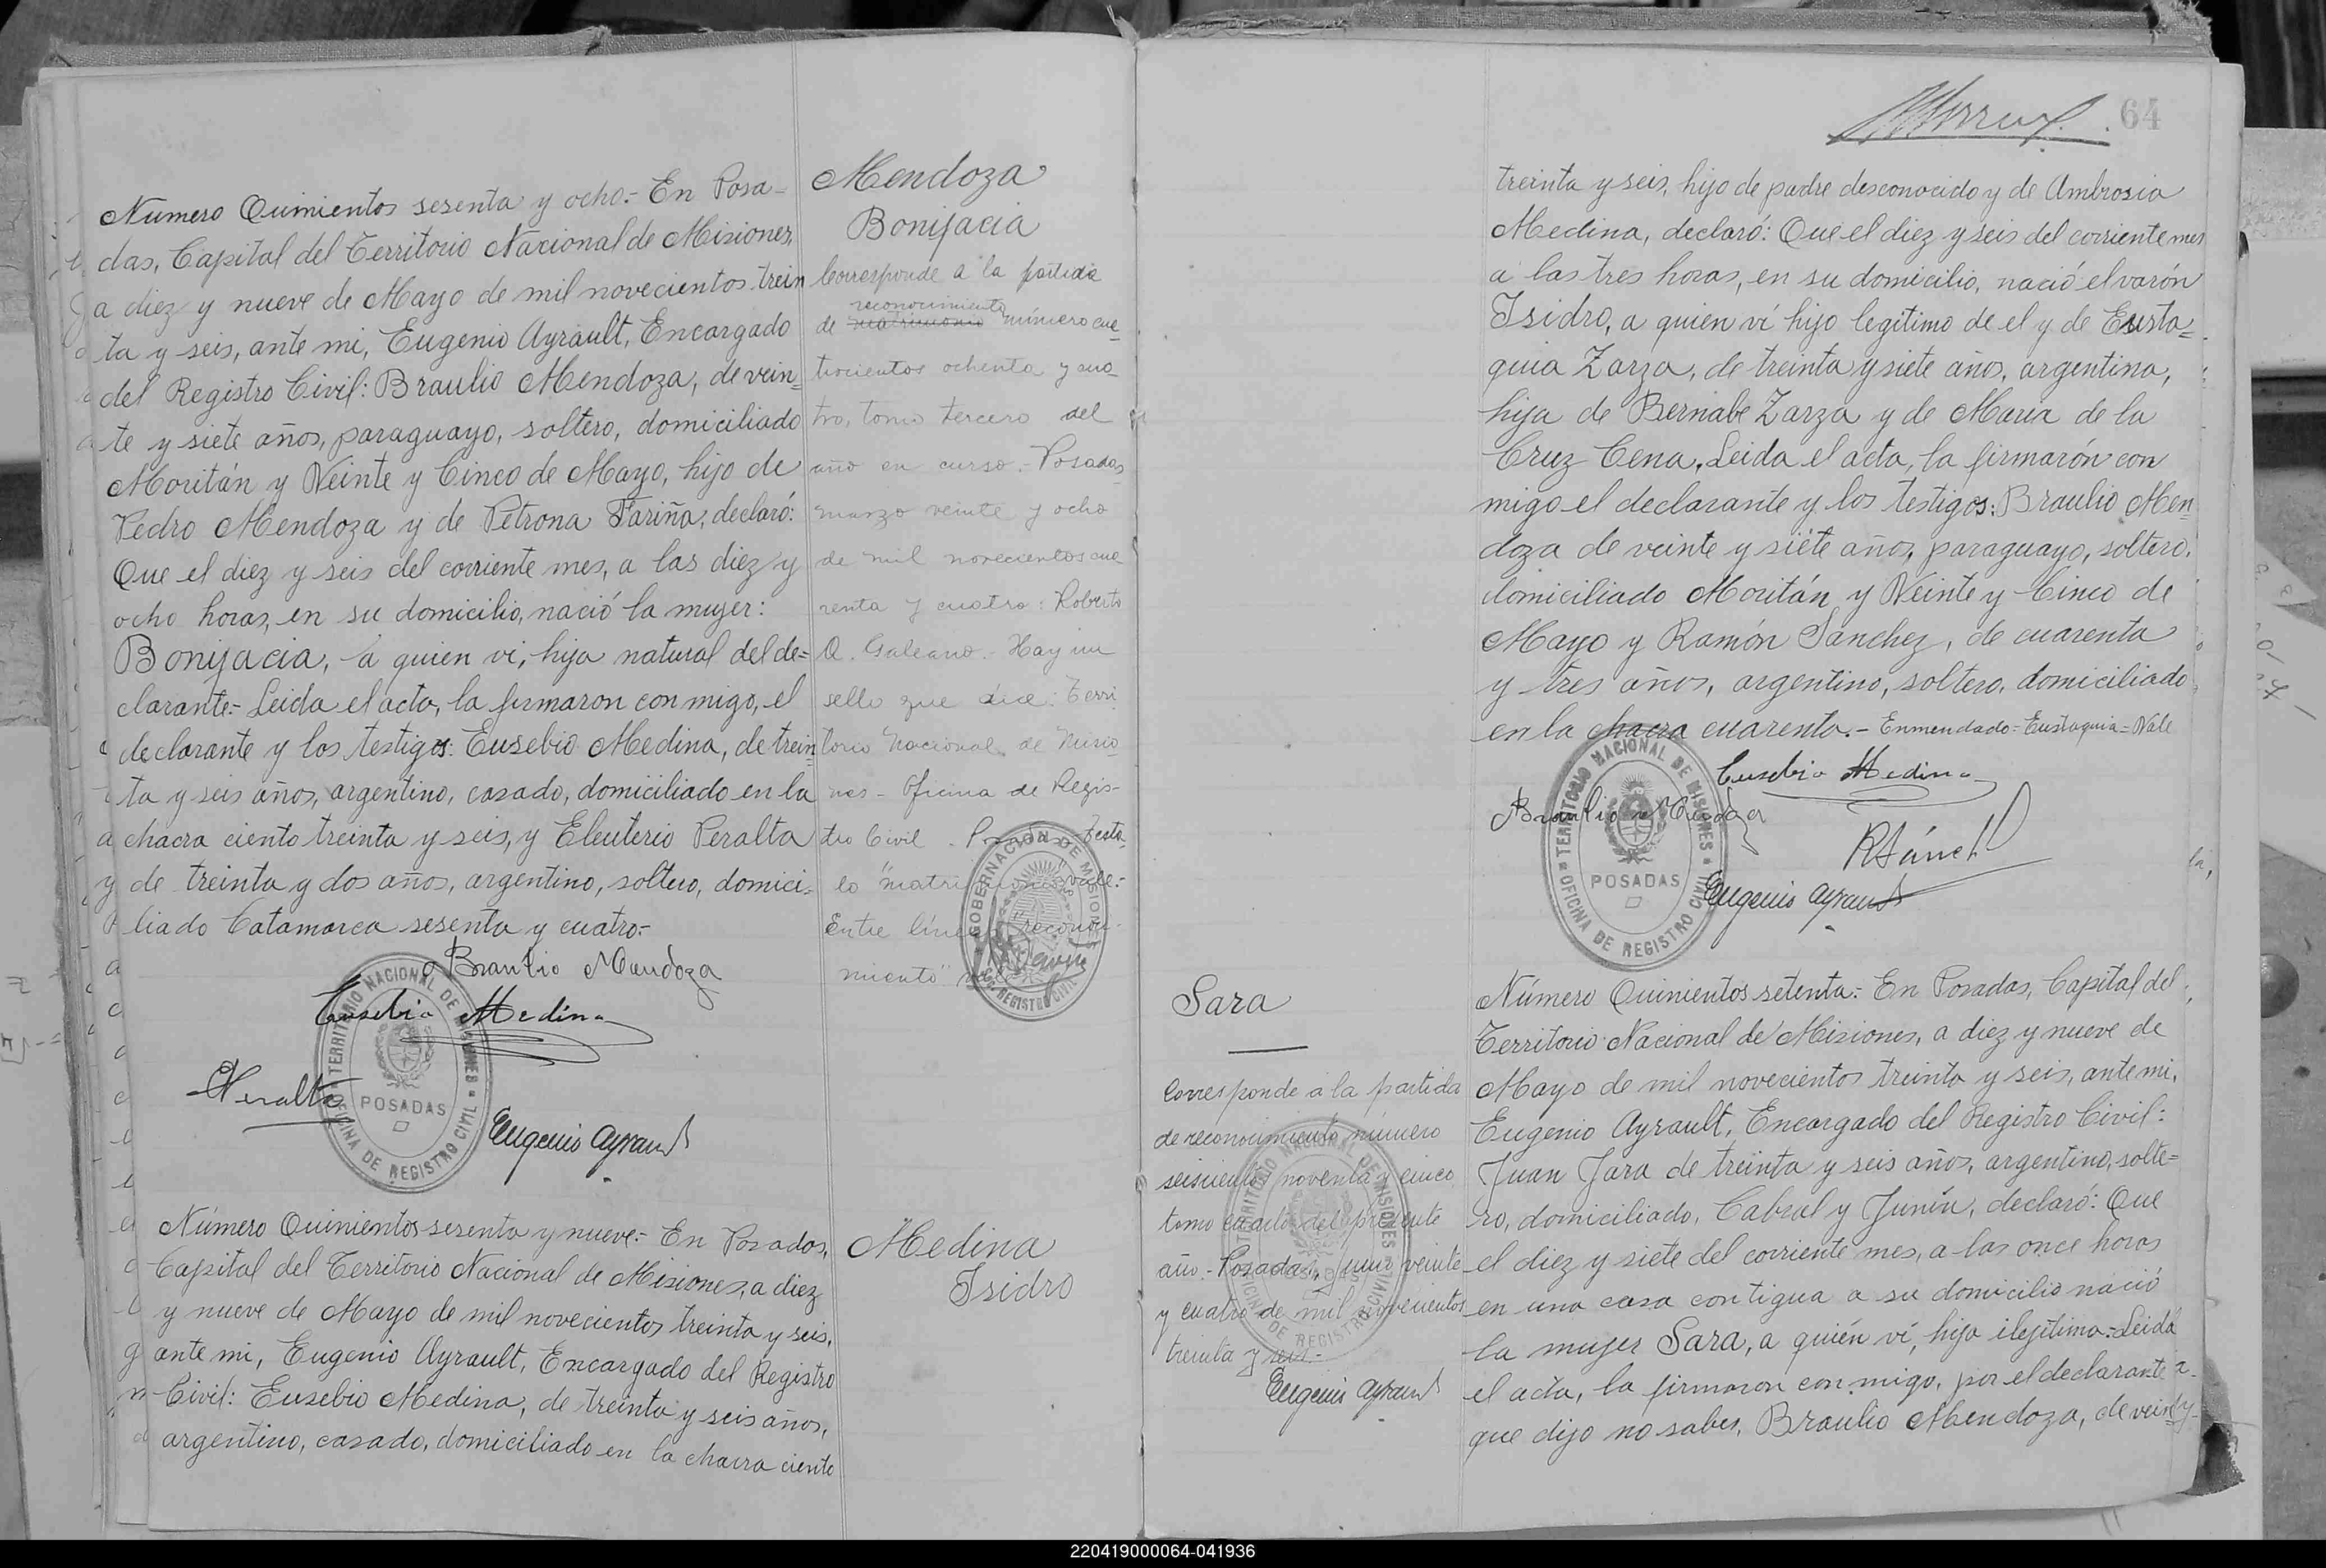 Número Quinientos sesenta y ocho.- En Posa-
das, Capital del Territorio Nacional de Misiones,
a diez y nueve de Mayo de mil novecientos trein
ta y seis, ante mi, Eugenio Ayrault, Encargado
del Registro Civil: Braulio Mendoza, de vein=
te y siete años, paraguayo, soltero, domiciliado
Moritán y Veinte y Cinco de Mayo, hijo de
Pedro Mendoza y de Petrona Fariña, declaró:
Que el diez y seis del corriente mes, a las diez y
ocho horas, en su domicilio, nació la mujer:
Bonifacia, a quien vi, hija natural del de=
clarante.- Leida el acta, la firmaron con migo, el
declarante y los testigos: Eusebio Medina, de trein
ta y seis años, argentino, casado, domiciliado en la
chacra ciento treinta y seis, y Eleuterio Peralta
de treinta y dos años, argentino, soltero, domici=
liado Catamarca sesenta y cuatro.-
Braulio Mendoza
Eusebio Medina
Peralta
Eugenio Ayrault
TERRITORIO NACIONAL DE MISIONES
POSADAS
OFICINA DE REGISTRO CIVIL
Mendoza
Bonifacia
Corresponde a la partida
reconocimiento
de matrimonio número cua
trocientos ochenta y cua
tro, tomo tercero del
año en curso.- Posadas
marzo veinte y ocho
de mil novecientos cua
renta y cuatro: Roberto
A. Galeano.- Hay un
sello que dice: Terri
torio Nacional de Misio
nes - Oficina de Regis-
tro Civil. Posadas Testa
do "matrimonio" vale:-
Entre líneas "reconoci-
miento" vale
GOBERNACION DE MISIONES
REGISTRO CIVIL
Número Quinientos sesenta y nueve.- En Posadas,
Capital del Territorio Nacional de Misiones, a diez
y nueve de Mayo de mil novecientos treinta y seis,
ante mi, Eugenio Ayrault, Encargado del Registro
Civil: Eusebio Medina, de treinta y seis años,
argentino, casado, domiciliado en la chacra ciento
Medina
Isidro
64
treinta y seis, hijo de padre desconocido y de Ambrosia
Medina, declaró: Que el diez y seis del corriente mes
a las tres horas, en su domicilio, nació el varón
Isidro, a quien ví hijo legitimo de el y de Eusta=
quia Zarza, de treinta y siete años, argentina,
hija de Bernabe Zarza y de Maria de la
Cruz Cena. Leida el acta, la firmarón con
migo el declarante y los testigos: Braulio Men
doza de veinte y siete años, paraguayo, soltero,
domiciliado Moritán y Veinte y Cinco de
Mayo y Ramón Sánchez, de cuarenta
y tres años, argentino, soltero, domiciliado
en la chacra cuarenta.- Enmendado=Eustaquia=Vale
Eusebio Medina
Braulio Mendoza
RSánchez
Eugenio Ayrault
TERRITORIO NACIONAL DE MISIONES
POSADAS
OFICINA DE REGISTRO CIVIL
Sara
Corresponde a la partida
de reconocimiento número
seiscientos noventa y cinco
tomo cuarto del presente
año.- Posadas, junio veinte
y cuatro de mil novecientos
treinta y seis.-
Eugenio Ayrault
TERRITORIO NACIONAL DE MISIONES
OFICINA DE REGISTRO CIVIL
Número Quinientos setenta.- En Posadas, Capital del
Territorio Nacional de Misiones, a diez y nueve de
Mayo de mil novecientos treinta y seis, ante mi,
Eugenio Ayrault, Encargado del Registro Civil:
Juan Jara de treinta y seis años, argentino, solte=
ro, domiciliado, Cabral y Junín, declaró: Que
el diez y siete del corriente mes, a las once horas
en una casa contigua a su domicilio nació
la mujer Sara, a quién ví, hija ilegitima.- Leida
el acta, la firmaron con migo, por el declarante
que dijo no saber, Braulio Mendoza, de vein
220419000064-041936